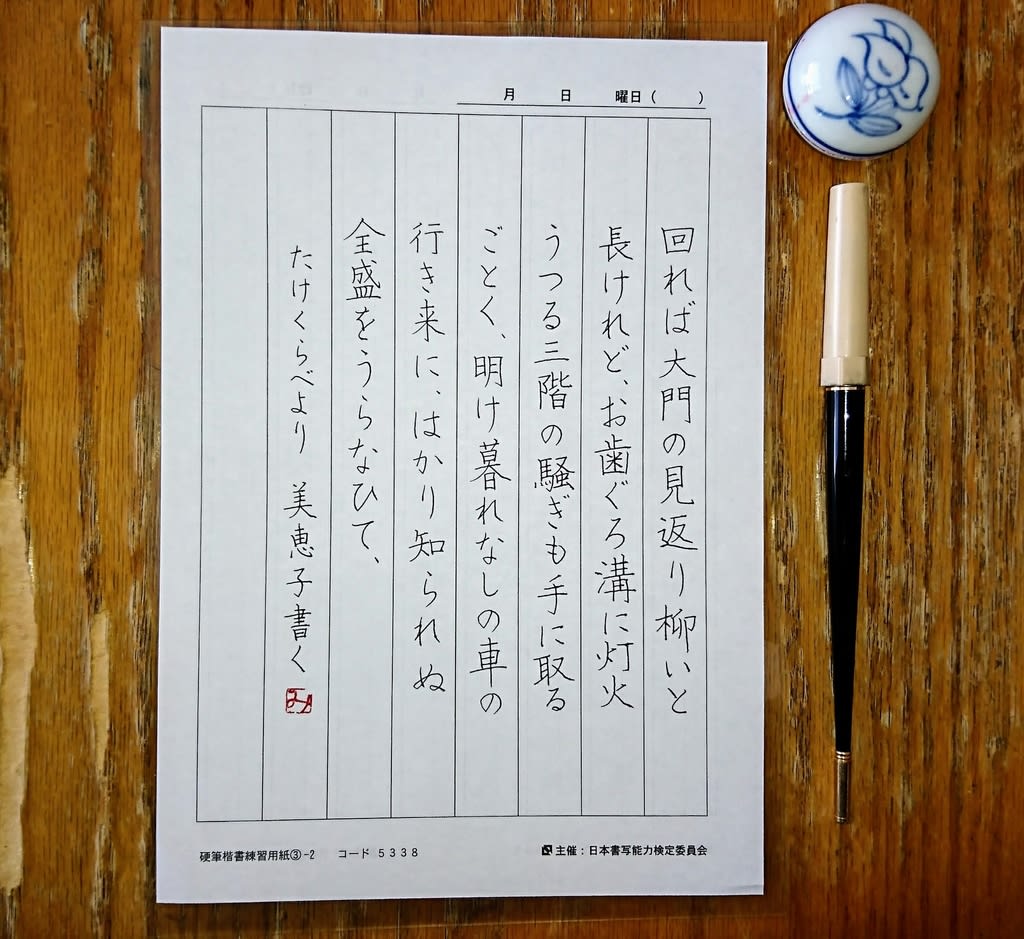 月 日 曜日( )
回れば大門の見返り柳いと
長けれど、お歯ぐろ溝に灯火
うつる三階の騒ぎも手に取る
ごとく、明け暮れなしの車の
行き来に、はかり知られぬ
全盛をうらなひて、
たけくらべより 美恵子書く
み
硬筆楷書練習用紙③-2 コード 5338
主催:日本書写能力検定委員会